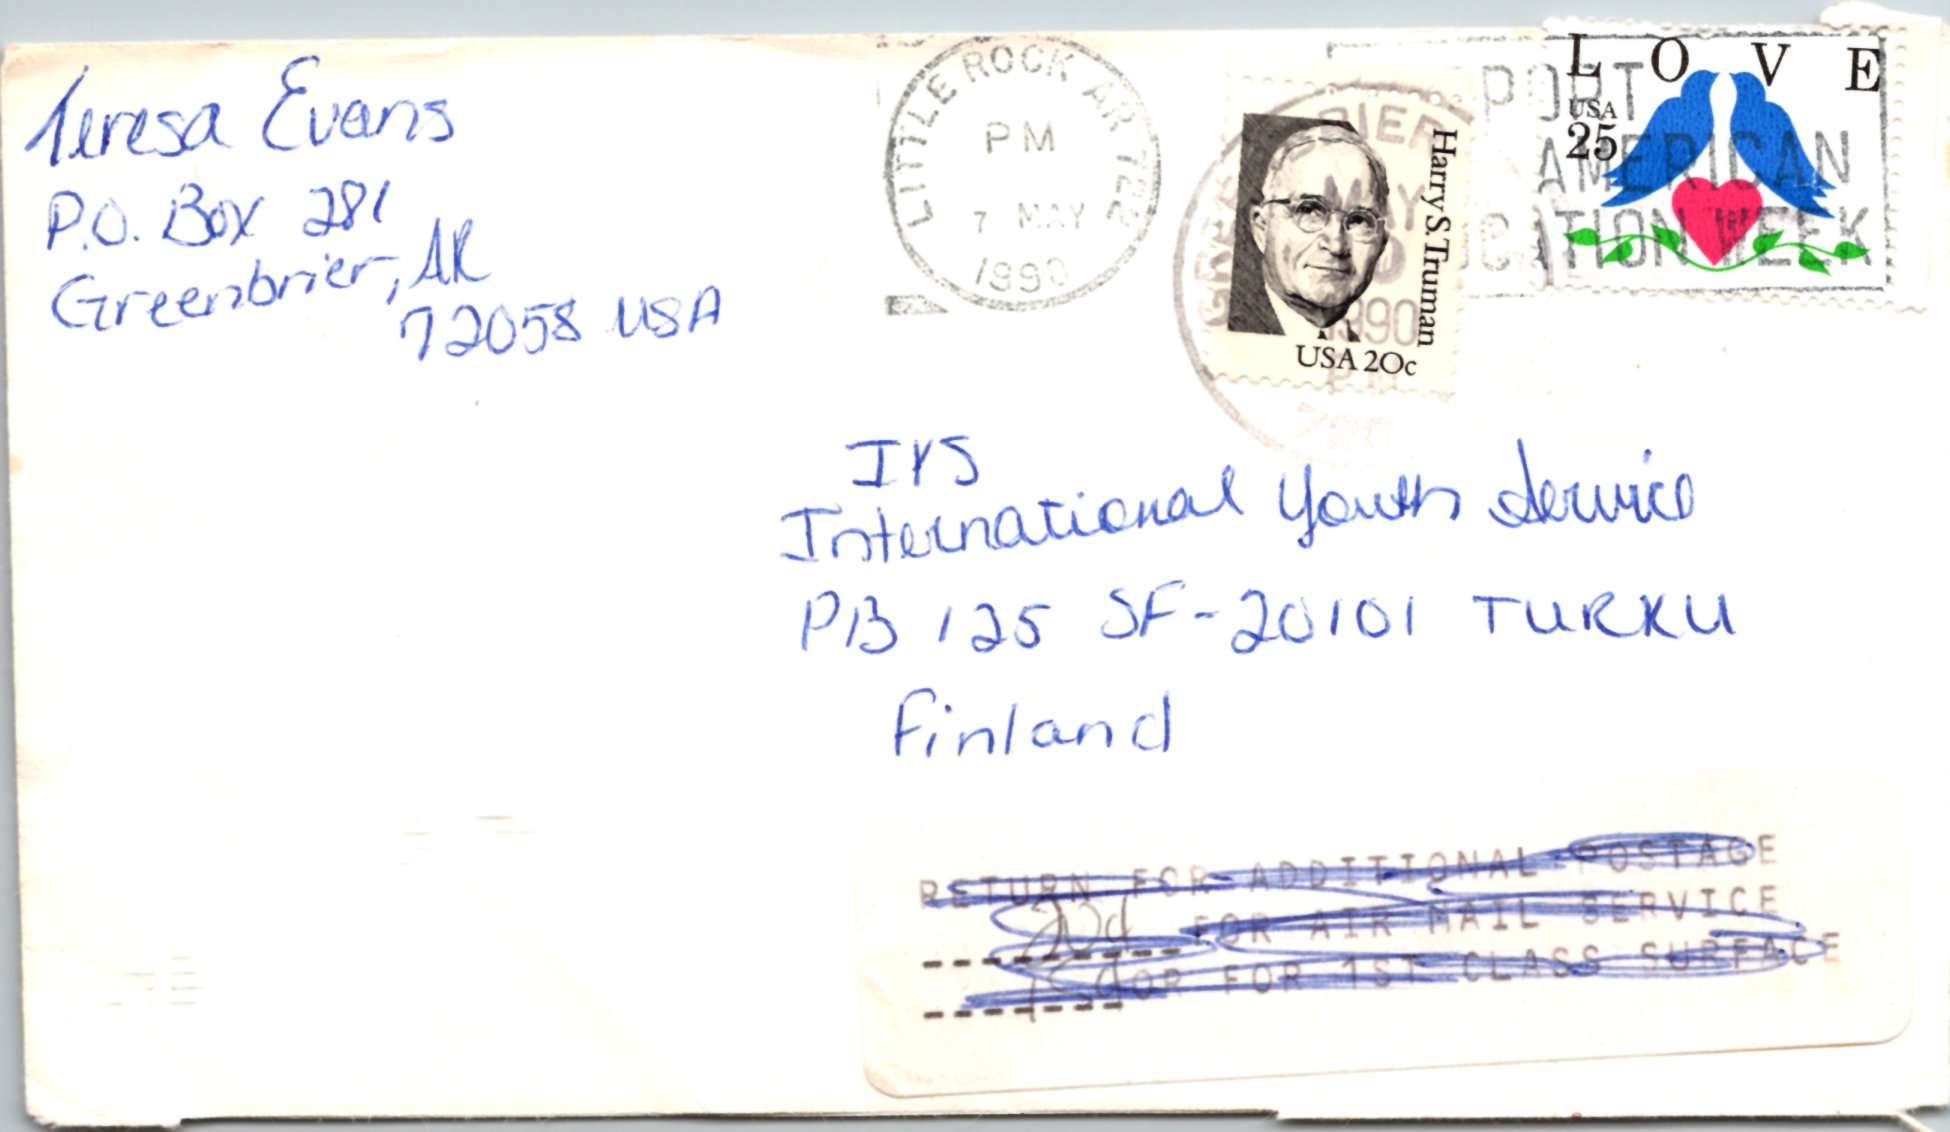 Teresa Evans
P.O. Box 281
Greenbrier, AR
72058 USA
LITTLE ROCK AR 722
PM
7 MAY
1990
MAY
1990
PM
720
Harry S. Truman
USA 20c
LOVE
USA
25
PORT
AMERICAN
CATION WEEK
IYS
International Youth Service
PB 125 SF-20101 TURKU
Finland
RETURN FOR ADDITIONAL POSTAGE
20¢ FOR AIR MAIL SERVICE
OR FOR 1ST CLASS SURFACE